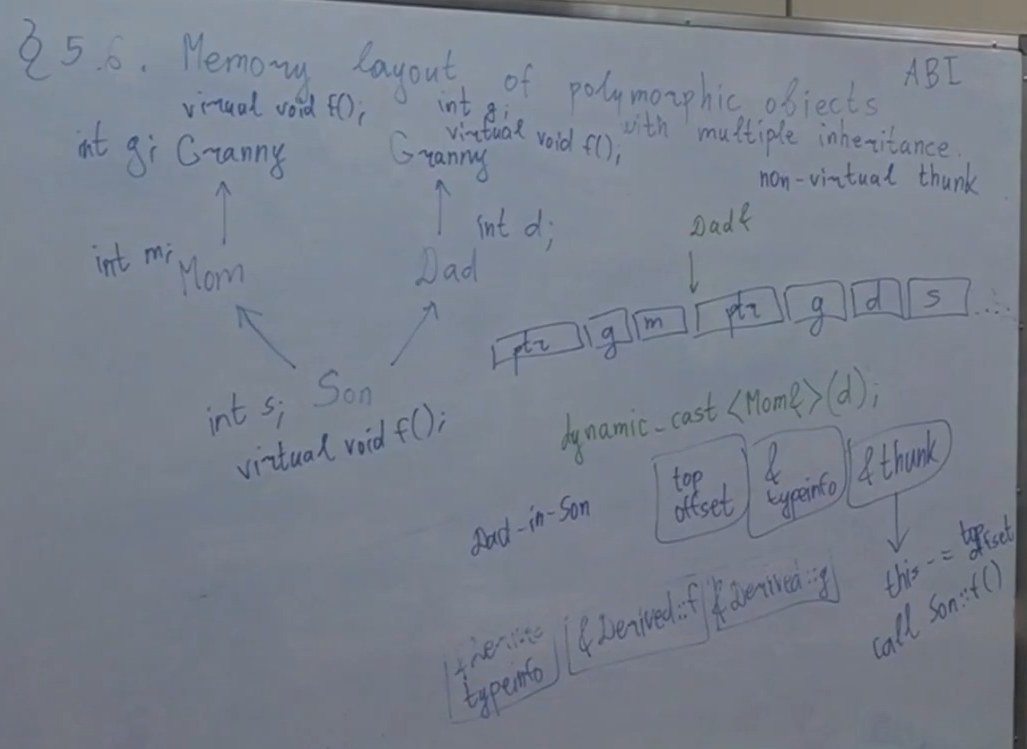 § 5.6. Memory layout of polymorphic objects
ABI
with multiple inheritance.
non-virtual thunk
virtual void f();
int g; Granny
int g;
virtual void f();
Granny
int m; Mom
int d;
Dad
int s; Son
virtual void f();
Dad&
ptr g m ptr g d s ...
dynamic_cast <Mom&>(d);
Dad-in-Son
top offset
& typeinfo
& thunk
this -= top offset
call Son::f()
typeinfo
& Derived::f
& Derived::g